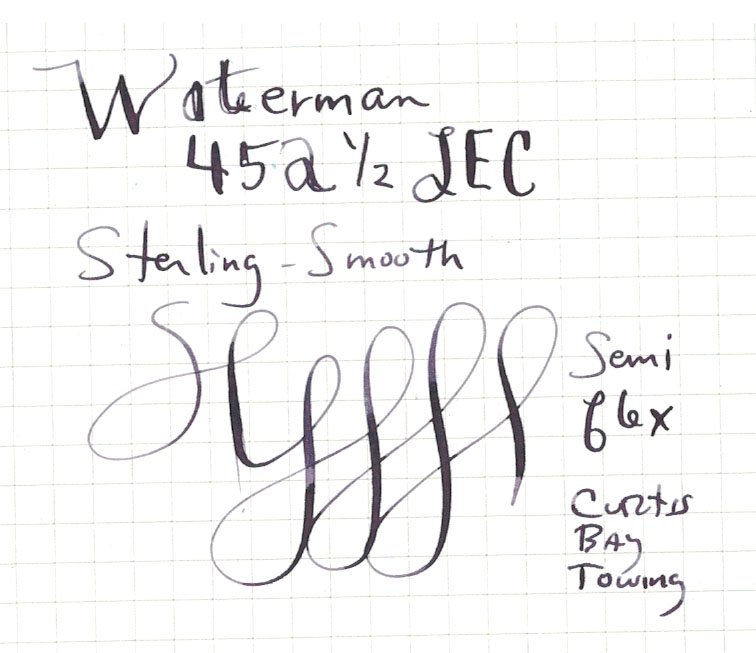 Waterman
452 1/2 LEC
Sterling - Smooth
Semi
flex
Curtis
Bay
Towing